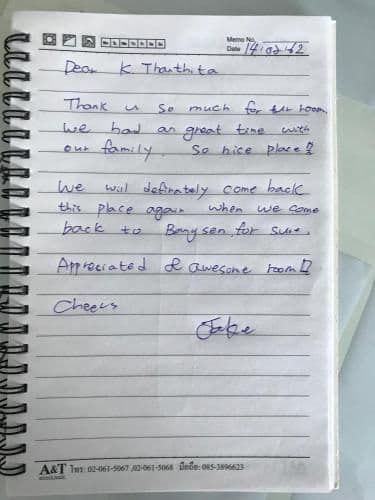 Memo No.
Date 14/02/62
Dear K. Thanthita
Thank u so much for ur room.
We had an great time with
our family. So nice place!!
We will definately come back
this place again when we come
back to Bangsen, for sure.
Appreciated & awesome room!!
Cheers
Jake
A&T โทร: 02-061-5067 ,02-061-5068 มือถือ: 085-3896623